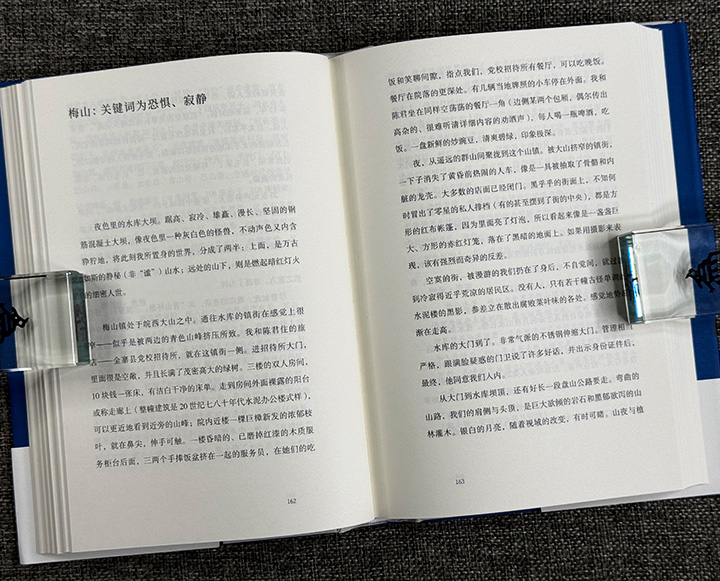 梅山：关键词为恐惧、寂静
夜色里的水库大坝。踞高、寂冷、雄矗、漫长、坚固的钢
筋混凝土大坝，像夜色里一种灰白色的怪兽，不动声色又内含
狰狞地，将此刻我所置身的世界，分成了两半：上面，是万古
如斯的静秘（非“谧”）山水；远处的山下，则是燃起暗红灯火
的细密人世。
梅山镇处于皖西大山之中。通往水库的镇街在感觉上很
窄——似乎是被两边的青色山峰挤压所致。我和陈君住的旅
店——金寨县党校招待所，就在这镇街一侧。进招待所大门，
里面很是空敞，并且长满了茂密高大的绿树。三楼的双人房间，
10块钱一张床，有洁白干净的床单。走到房间外面裸露的阳台
或称走廊上（整幢建筑是20世纪七八十年代水泥办公楼式样），
可以更近地看到近旁的山峰；院内近楼一棵巨樟新发的浓郁枝
叶，就在鼻尖，伸手可触。一楼昏暗的、已磨掉红漆的木质服
务柜台后面，三两个手捧饭盆挤在一起的服务员，在她们的吃
162
饭和笑聊间隙，指点我们，党校招待所有餐厅，可以吃晚饭。
餐厅在院落的更深处。有几辆当地牌照的小车停在外面。我和
陈君坐在同样空荡荡的餐厅一角（边侧某两个包厢，偶尔传出
高杂的、很难听请详细内容的劝酒声），每人喝一瓶啤酒，吃
饭。一盘新鲜的炒豌豆，清爽碧绿，印象极深。
夜，从遥远的群山间聚拢到这个山镇。被大山挤窄的镇街，
一下子消失了黄昏前热闹的人车，像是一具被抽取了骨骼和内
脏的龙壳。大多数的店面已经闭门。黑乎乎的街面上，不知何
时冒出了零星的私人排档（有的甚至摆到了街的中央），都是方
形的红布帐篷，因为里面亮了灯泡，所以看起来像是一盏盏巨
大、方形的赤红灯笼，落在了黑暗的地面上。如果用摄影来表
现，该有强烈而奇异的反差。
空寞的街，被漫游的我们扔在了身后，不自觉间，就过
到冷寂得近乎荒凉的居民区。没有人，只有若干幢古怪单调
水泥楼的黑影，参差立在散出腐败菜叶味的各处。感觉地势
渐在走高。
水库的大门到了。非常气派的不锈钢伸缩大门。管理相当
严格，跟满脸疑惑的门卫说了许多好话，并出示身份证件后，
最终，他同意我们入内。
从大门到水库坝顶，还有好长一段盘山公路要走。弯曲的
山路，我们的肩侧与头顶，是巨大欹倾的岩石和墨郁欹泻的山
林灌木。银白的月亮，随着视域的改变，有时可睹。山夜与植
163